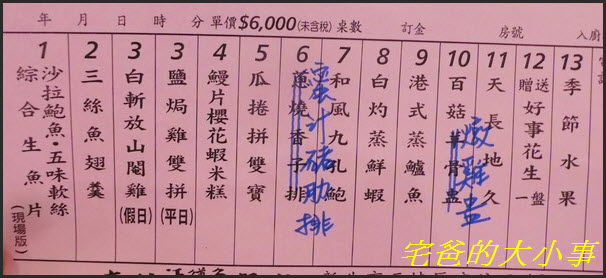 年 月 日 時 分 單價$6,000(未含稅) 桌數 訂金 房號 入廚
1 沙拉鮑魚・五味軟絲
綜合生魚片(現場版)
2 三絲魚翅羹
3 白斬放山閹雞(假日)
3 鹽焗雞雙拼(平日)
4 鰻片櫻花蝦米糕
5 瓜捲拼雙寶
6 蔥燒香子排
蜜汁豬肋排
7 和風九孔鮑
8 白灼蒸鮮蝦
9 港式蒸鱸魚
10 百菇羊骨盅
燉雞盅
11 天長地久
12 贈送好事花生一盤
13 季節水果
宅爸的大小事